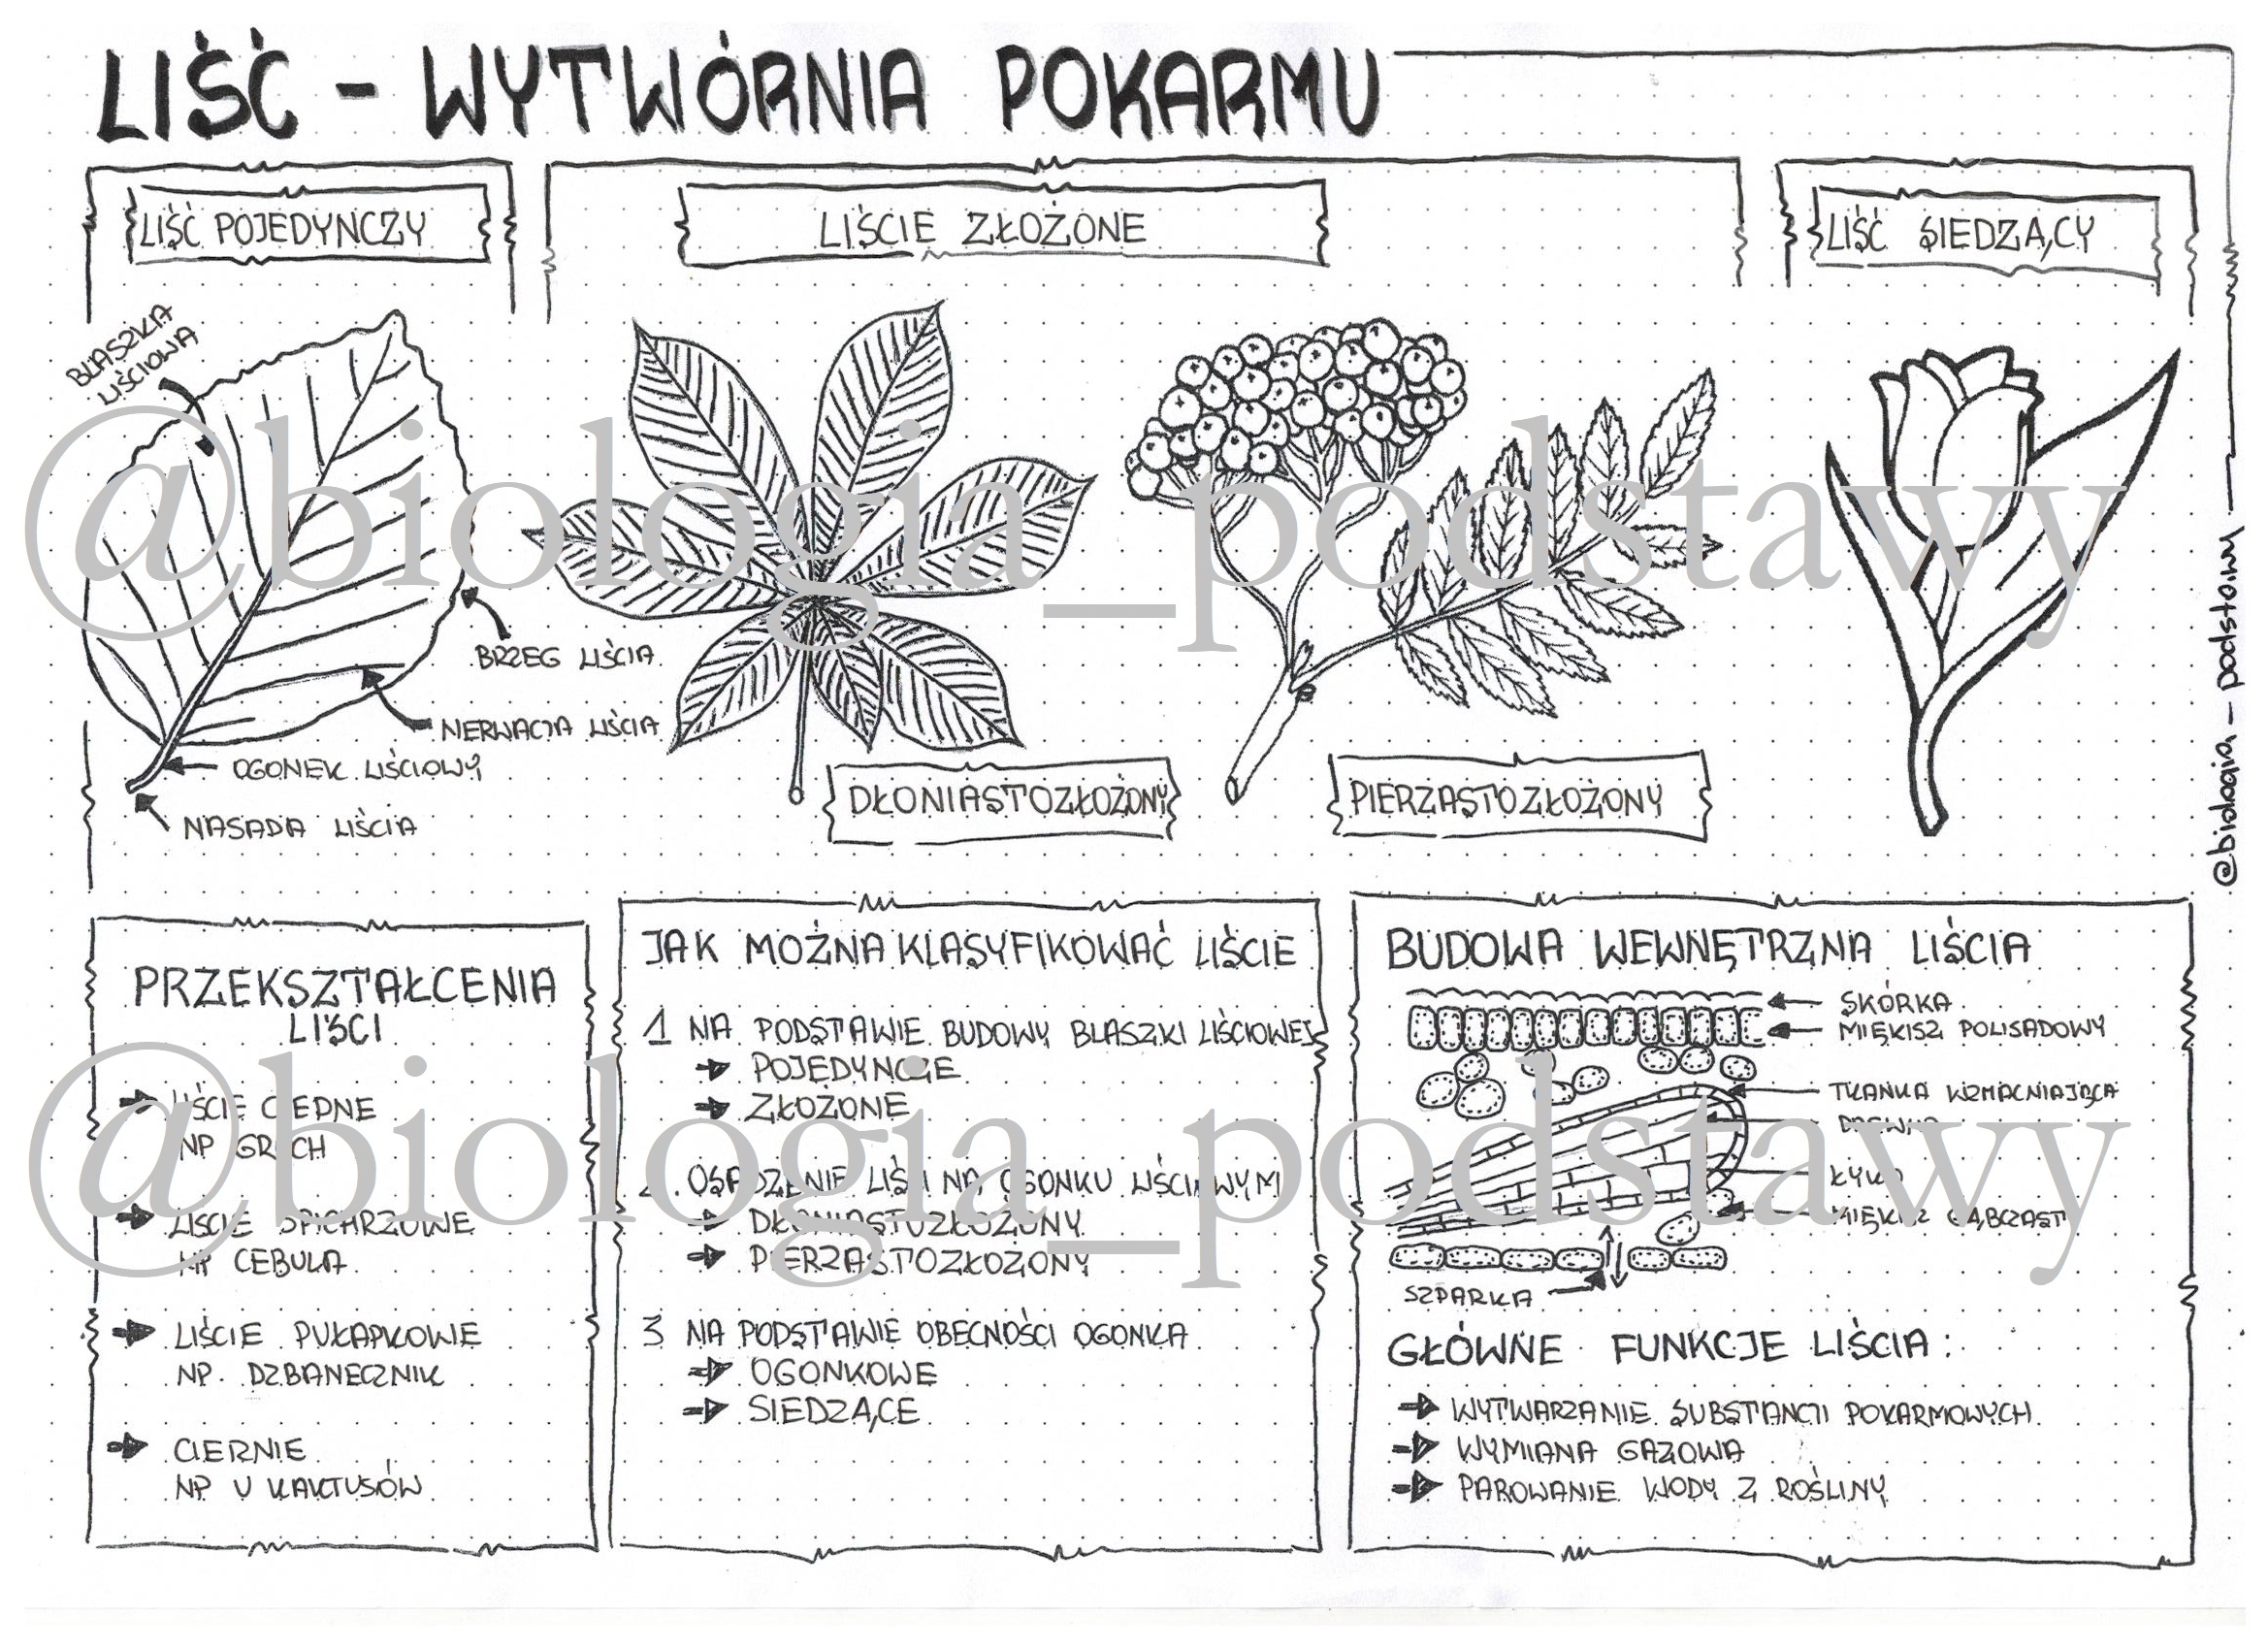 LIŚĆ - WYTWÓRNIA POKARMU
LIŚĆ POJEDYNCZY
LIŚCIE ZŁOŻONE
LIŚĆ SIEDZĄCY
BLASZKA
LIŚCIOWA
BRZEG LIŚCIA
NERWACJA LIŚCIA
OGONEK LIŚCIOWY
NASADA LIŚCIA
DŁONIASTOZŁOŻONY
PIERZASTOZŁOŻONY
@biologia_podstawy
@biologia_podstawy
PRZEKSZTAŁCENIA
LIŚCI
LIŚCIE CZEPNE
NP GROCH
LIŚCIE SPICHRZOWE
NP CEBULA
LIŚCIE PUŁAPKOWE
NP. DZBANECZNIK
CIERNIE
NP U KAKTUSÓW
JAK MOŻNA KLASYFIKOWAĆ LIŚCIE
1 NA PODSTAWIE BUDOWY BLASZKI LIŚCIOWEJ
POJEDYNCZE
ZŁOŻONE
2. OSADZENIE LIŚCI NA OGONKU LIŚCIOWYM
DŁONIASTOZŁOŻONY
PIERZASTOZŁOŻONY
3 NA PODSTAWIE OBECNOŚCI OGONKA
OGONKOWE
SIEDZĄCE
BUDOWA WEWNĘTRZNA LIŚCIA
SKÓRKA
MIĘKISZ POLISADOWY
TKANKA WZMACNIAJĄCA
DREWNO
ŁYKO
MIĘKISZ GĄBCZASTY
SZPARKA
GŁÓWNE FUNKCJE LIŚCIA:
WYTWARZANIE SUBSTANCJI POKARMOWYCH
WYMIANA GAZOWA
PAROWANIE WODY Z ROŚLINY
@biologia_podstawy